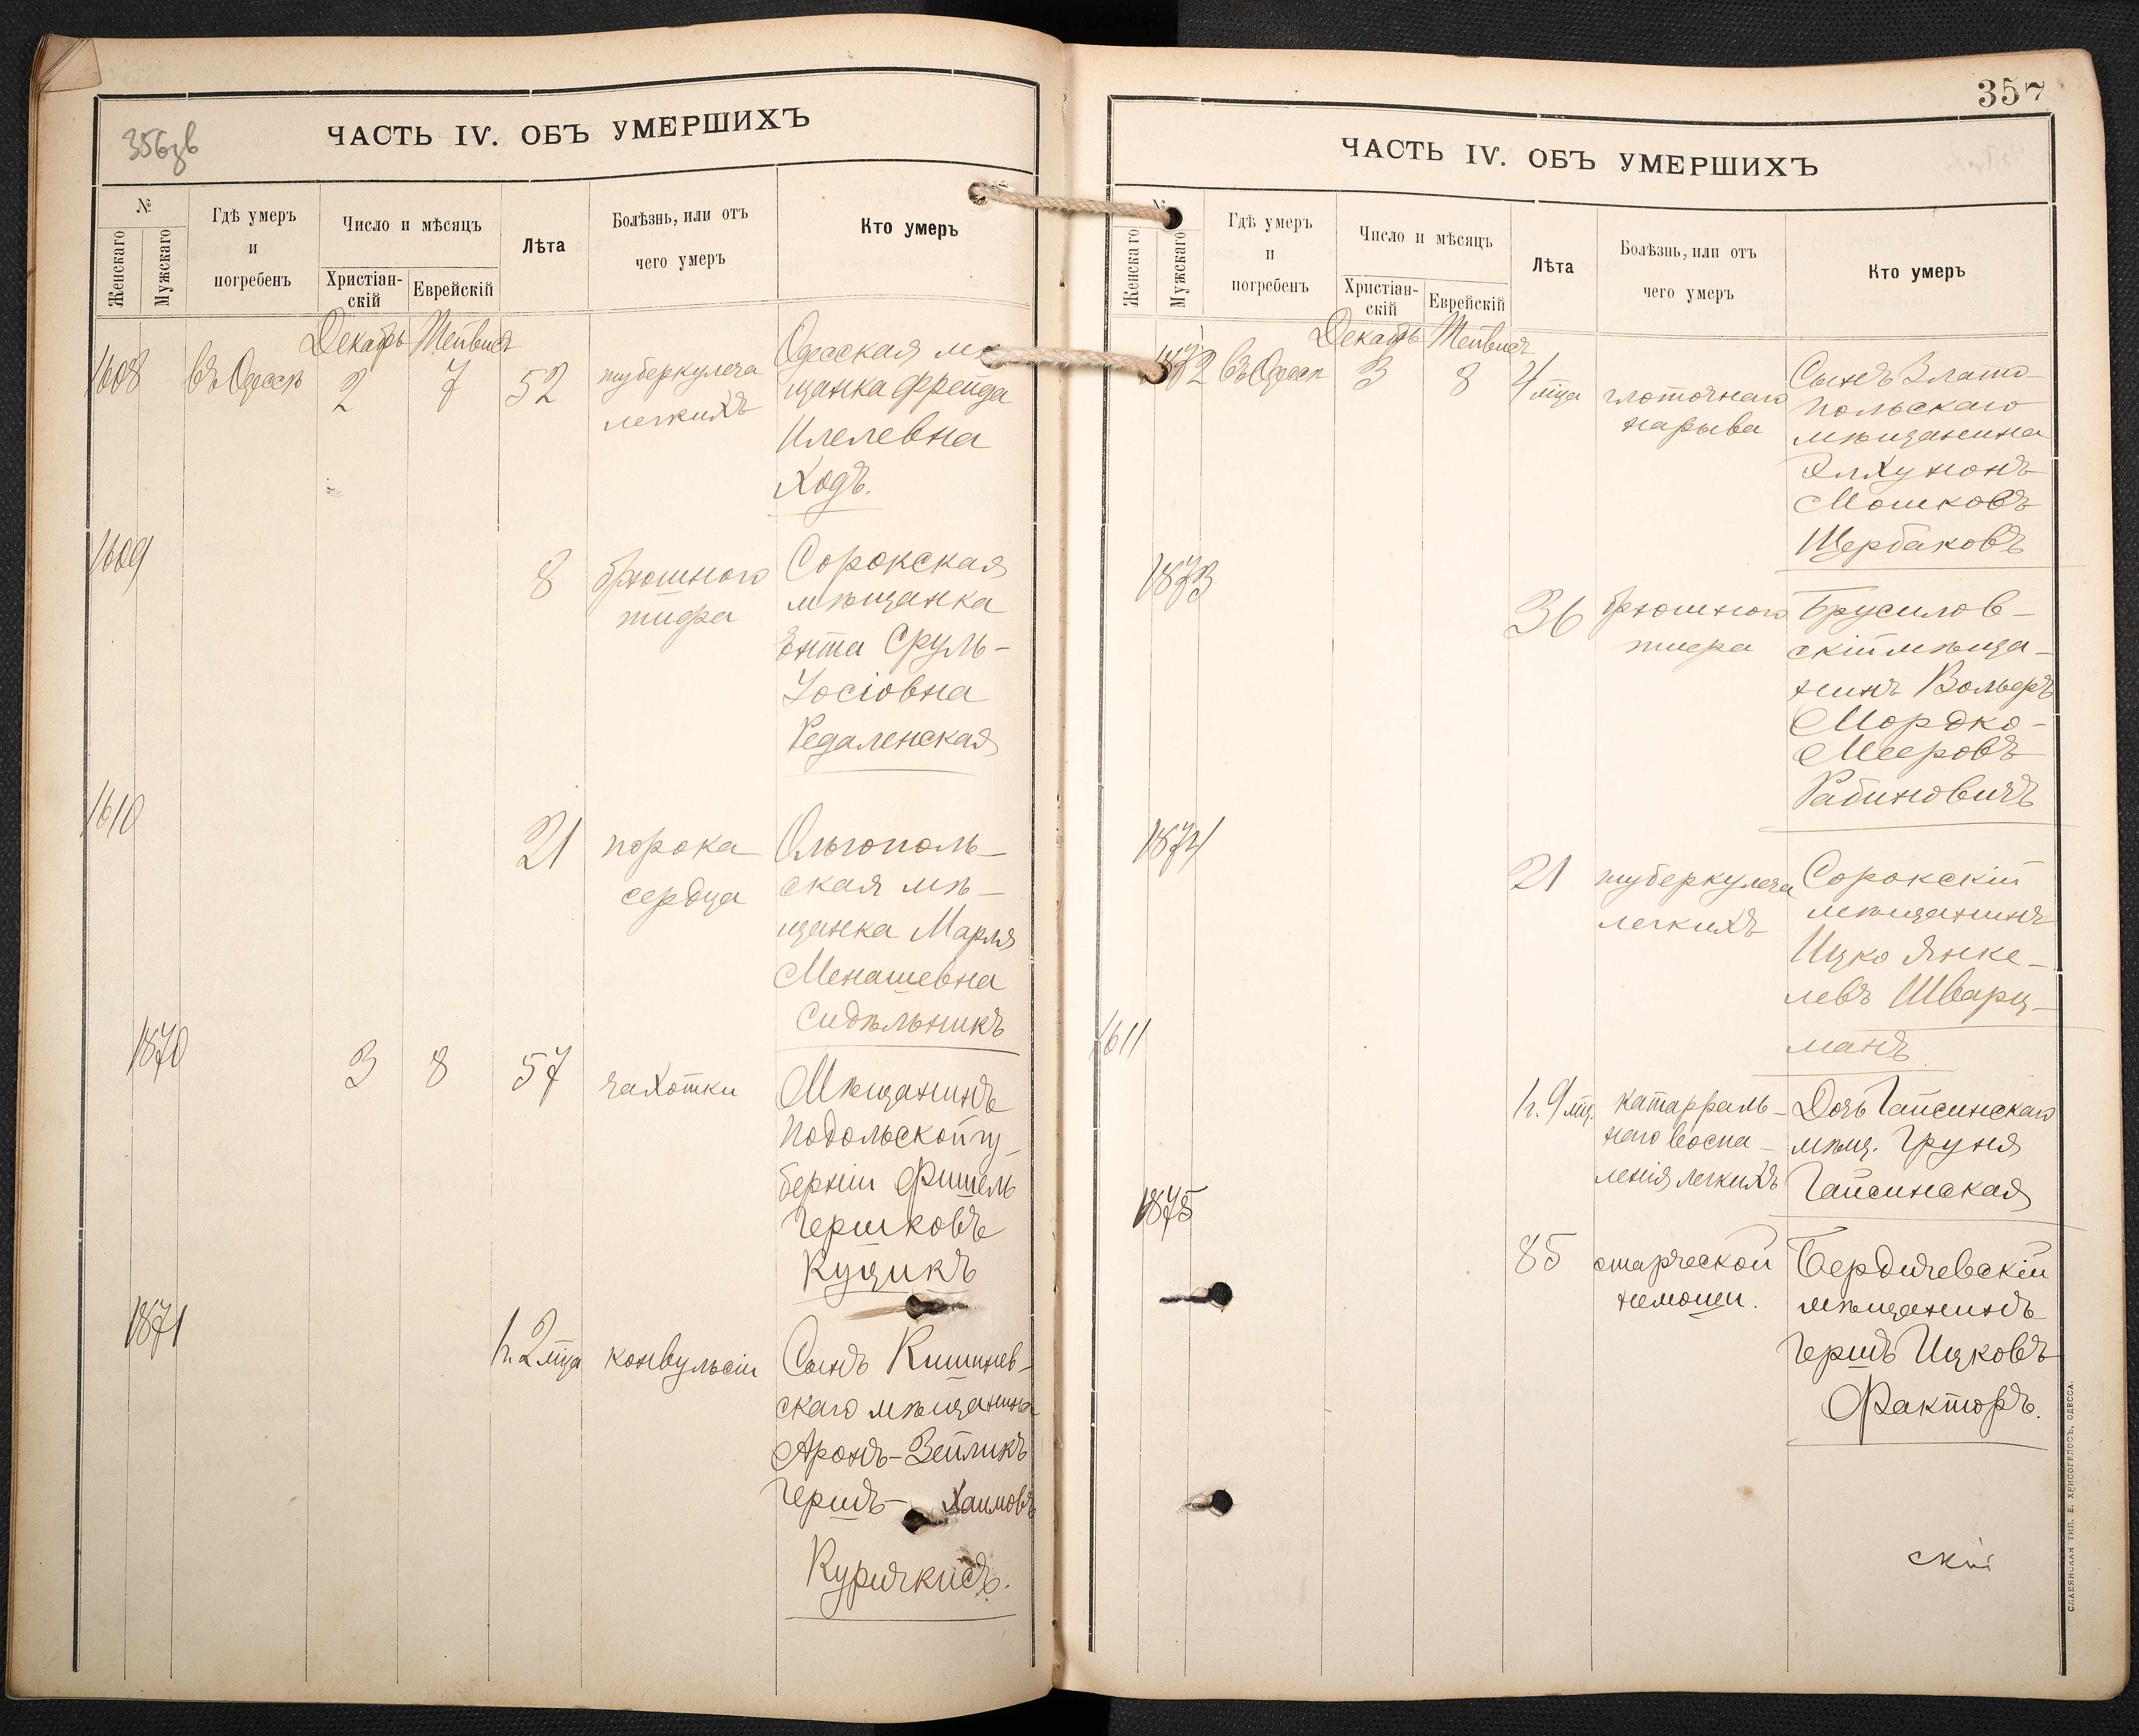 356об
ЧАСТЬ IV. ОБЪ УМЕРШИХЪ
№
Женскаго
Мужскаго
Гдѣ умеръ
и
погребенъ
Число и мѣсяцъ
Христіан-
скій
Еврейскій
Лѣта
Болѣзнь, или отъ
чего умеръ
Кто умеръ
Декабрь Тейвисъ
1608 въ Одессѣ 2 7 52
туберкулеза
легкихъ
Одесская мѣ
щанка Фрейда
Илелевна
Ходъ.
1609
8
брюшного
тифа
Сорокская
мѣщанка
Ента Сруль-
Іосіовна
Редаленская
1610
21
порока
сердца
Ольгополь-
ская мѣ-
щанка Марля
Менашевна
Сидѣльникъ
1870 3 8 57
чахотки
Мѣщанинъ
Подольской гу-
берніи Фишель
Гершковъ
Куцикъ
1871
1 г. 2 мца
конвульсіи
Сынъ Кишинев-
скаго мѣщанина
Аронъ-Зейликъ
Гершъ- Хаимовъ
357
ЧАСТЬ IV. ОБЪ УМЕРШИХЪ
№
Женскаго
Мужскаго
Гдѣ умеръ
и
погребенъ
Число и мѣсяцъ
Христіан-
скій
Еврейскій
Лѣта
Болѣзнь, или отъ
чего умеръ
Кто умеръ
Декабрь Тейвисъ
1872 въ Одессѣ 3 8 4 мца
глоточнаго
нарыва
Сынъ Злато
польскаго
мѣщанина
Элхунонъ
Мошковъ
Щербаковъ
1873
36
брюшного
тифа
Брусилов-
скій мѣща-
нинъ Вольфъ
Мордко-
Мееровъ
Рабиновичъ
1874
21
туберкулеза
легкихъ
Сорокскій
мѣщанинъ
Ицко Янке-
левъ Шварц-
манъ
1611
1 г. 9 мц.
катарраль-
наго воспа-
ленія легкихъ
Дочь Гайсинскаго
мѣщ. Груня
Гайсинская
1875
85
старческой
немощи.
Бердичевскій
мѣщанинъ
Гершъ Ицковъ
Факторъ.
скій
СЛАВЯНСКАЯ ТИП. Е. ХРИСОГЕЛОСЪ, ОДЕССА.